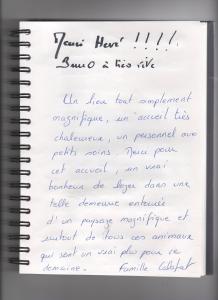 Merci Hervé !!!!
Bruno à très vite
Un lieu tout simplement
magnifique, un accueil très
chaleureux, un personnel aux
petits soins. Merci pour
cet accueil, un vrai
bonheur de loger dans une
telle demeure entourée
d'un paysage magnifique et
surtout de tous ces animaux
qui sont un vrai plus pour ce
domaine. Famille